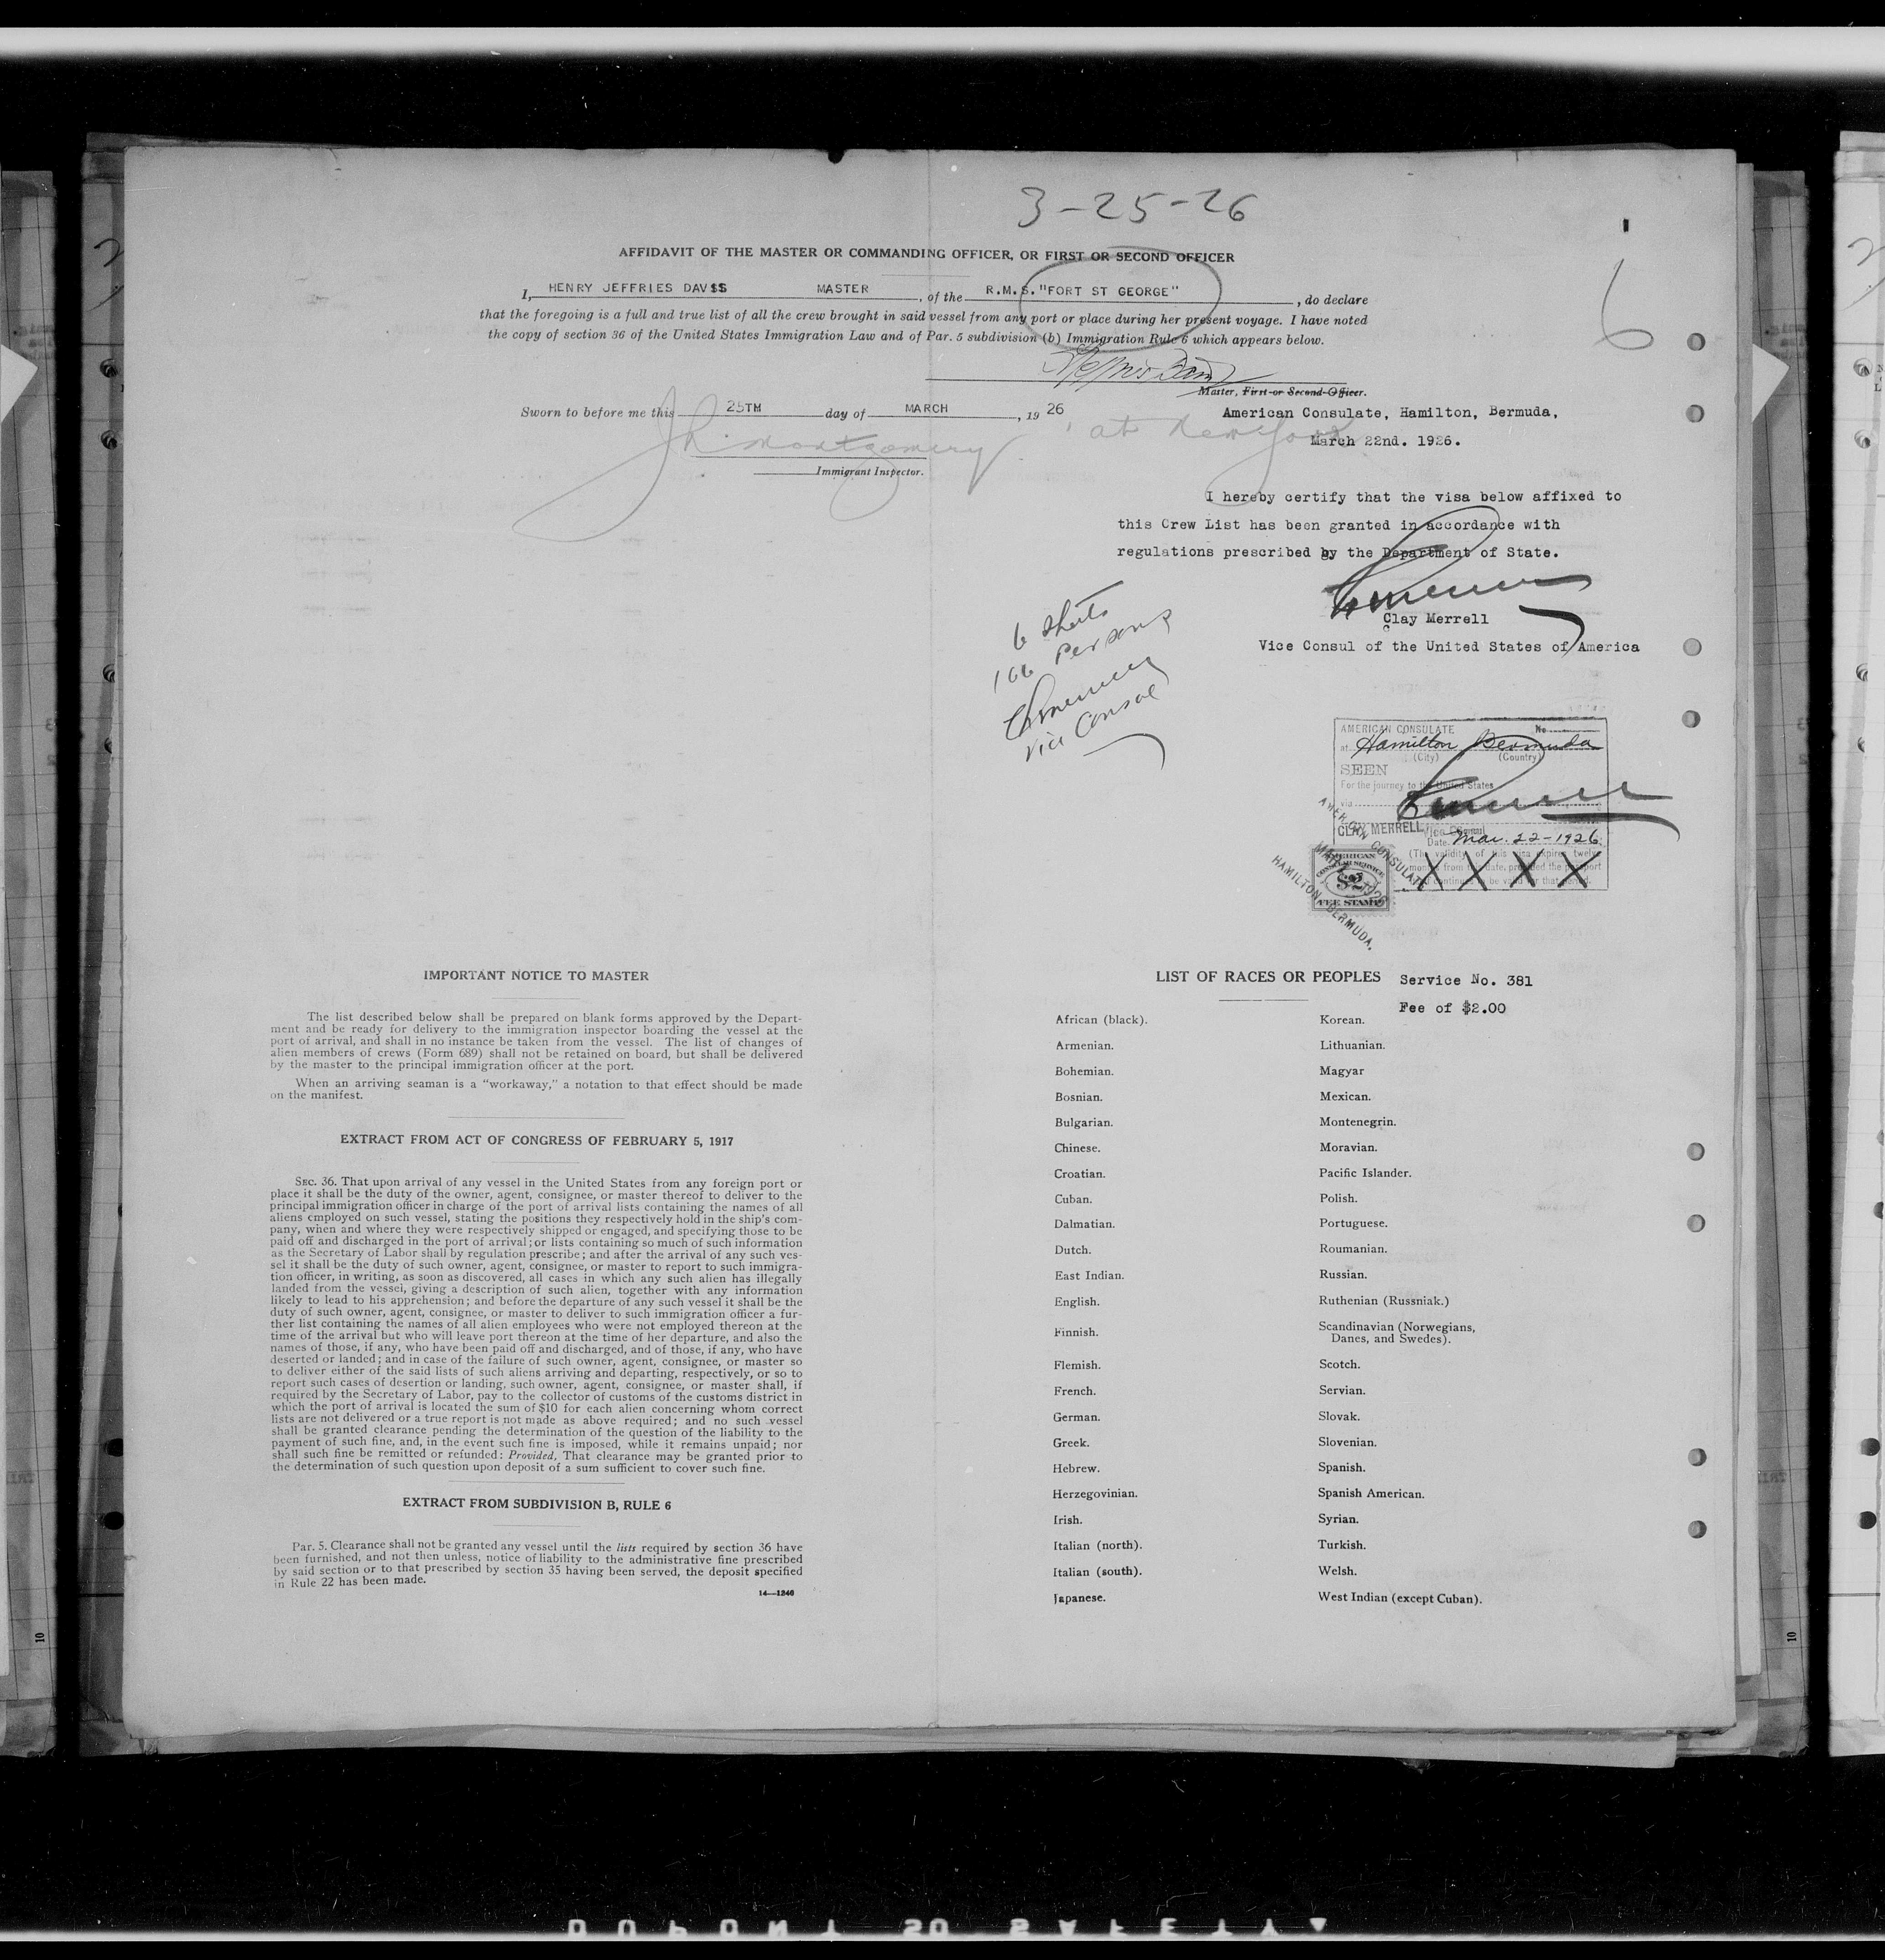 3-25-26
6
AFFIDAVIT OF THE MASTER OR COMMANDING OFFICER, OR FIRST OR SECOND OFFICER
I, HENRY JEFFRIES DAV$S MASTER, of the R.M.S."FORT ST GEORGE", do declare
that the foregoing is a full and true list of all the crew brought in said vessel from any port or place during her present voyage. I have noted
the copy of section 36 of the United States Immigration Law and of Par. 5 subdivision (b) Immigration Rule 6 which appears below.
Master, First or Second Officer.
Sworn to before me this 25TH day of MARCH, 1926
at New York
J R Montgomery
Immigrant Inspector.
American Consulate, Hamilton, Bermuda,
March 22nd. 1926.
I hereby certify that the visa below affixed to
this Crew List has been granted in accordance with
regulations prescribed by the Department of State.
Clay Merrell
Vice Consul of the United States of America
6 sheets
166 Persons
Vice Consul
AMERICAN CONSULATE No
at Hamilton Bermuda
(City) (Country)
SEEN
For the journey to the United States
via
CLAY MERRELL, Vice Consul
Date Mar. 22-1926
(The validity of this visa expires twelve
months from this date, provided the passport
continues to be valid for that period.
XXXX
AMERICAN CONSULATE
HAMILTON, BERMUDA.
AMERICAN
CONSULAR SERVICE
$2
FEE STAMP
IMPORTANT NOTICE TO MASTER
The list described below shall be prepared on blank forms approved by the Depart-
ment and be ready for delivery to the immigration inspector boarding the vessel at the
port of arrival, and shall in no instance be taken from the vessel. The list of changes of
alien members of crews (Form 689) shall not be retained on board, but shall be delivered
by the master to the principal immigration officer at the port.
When an arriving seaman is a "workaway," a notation to that effect should be made
on the manifest.
EXTRACT FROM ACT OF CONGRESS OF FEBRUARY 5, 1917
SEC. 36. That upon arrival of any vessel in the United States from any foreign port or
place it shall be the duty of the owner, agent, consignee, or master thereof to deliver to the
principal immigration officer in charge of the port of arrival lists containing the names of all
aliens employed on such vessel, stating the positions they respectively hold in the ship's com-
pany, when and where they were respectively shipped or engaged, and specifying those to be
paid off and discharged in the port of arrival; or lists containing so much of such information
as the Secretary of Labor shall by regulation prescribe; and after the arrival of any such ves-
sel it shall be the duty of such owner, agent, consignee, or master to report to such immigra-
tion officer, in writing, as soon as discovered, all cases in which any such alien has illegally
landed from the vessel, giving a description of such alien, together with any information
likely to lead to his apprehension; and before the departure of any such vessel it shall be the
duty of such owner, agent, consignee, or master to deliver to such immigration officer a fur-
ther list containing the names of all alien employees who were not employed thereon at the
time of the arrival but who will leave port thereon at the time of her departure, and also the
names of those, if any, who have been paid off and discharged, and of those, if any, who have
deserted or landed; and in case of the failure of such owner, agent, consignee, or master so
to deliver either of the said lists of such aliens arriving and departing, respectively, or so to
report such cases of desertion or landing, such owner, agent, consignee, or master shall, if
required by the Secretary of Labor, pay to the collector of customs of the customs district in
which the port of arrival is located the sum of $10 for each alien concerning whom correct
lists are not delivered or a true report is not made as above required; and no such vessel
shall be granted clearance pending the determination of the question of the liability to the
payment of such fine, and, in the event such fine is imposed, while it remains unpaid; nor
shall such fine be remitted or refunded: Provided, That clearance may be granted prior to
the determination of such question upon deposit of a sum sufficient to cover such fine.
EXTRACT FROM SUBDIVISION B, RULE 6
Par. 5. Clearance shall not be granted any vessel until the lists required by section 36 have
been furnished, and not then unless, notice of liability to the administrative fine prescribed
by said section or to that prescribed by section 35 having been served, the deposit specified
in Rule 22 has been made.
14—1246
LIST OF RACES OR PEOPLES
Service No. 381
Fee of $2.00
African (black).
Armenian.
Bohemian.
Bosnian.
Bulgarian.
Chinese.
Croatian.
Cuban.
Dalmatian.
Dutch.
East Indian.
English.
Finnish.
Flemish.
French.
German.
Greek.
Hebrew.
Herzegovinian.
Irish.
Italian (north).
Italian (south).
Japanese.
Korean.
Lithuanian.
Magyar
Mexican.
Montenegrin.
Moravian.
Pacific Islander.
Polish.
Portuguese.
Roumanian.
Russian.
Ruthenian (Russniak.)
Scandinavian (Norwegians,
Danes, and Swedes).
Scotch.
Servian.
Slovak.
Slovenian.
Spanish.
Spanish American.
Syrian.
Turkish.
Welsh.
West Indian (except Cuban).
10
10